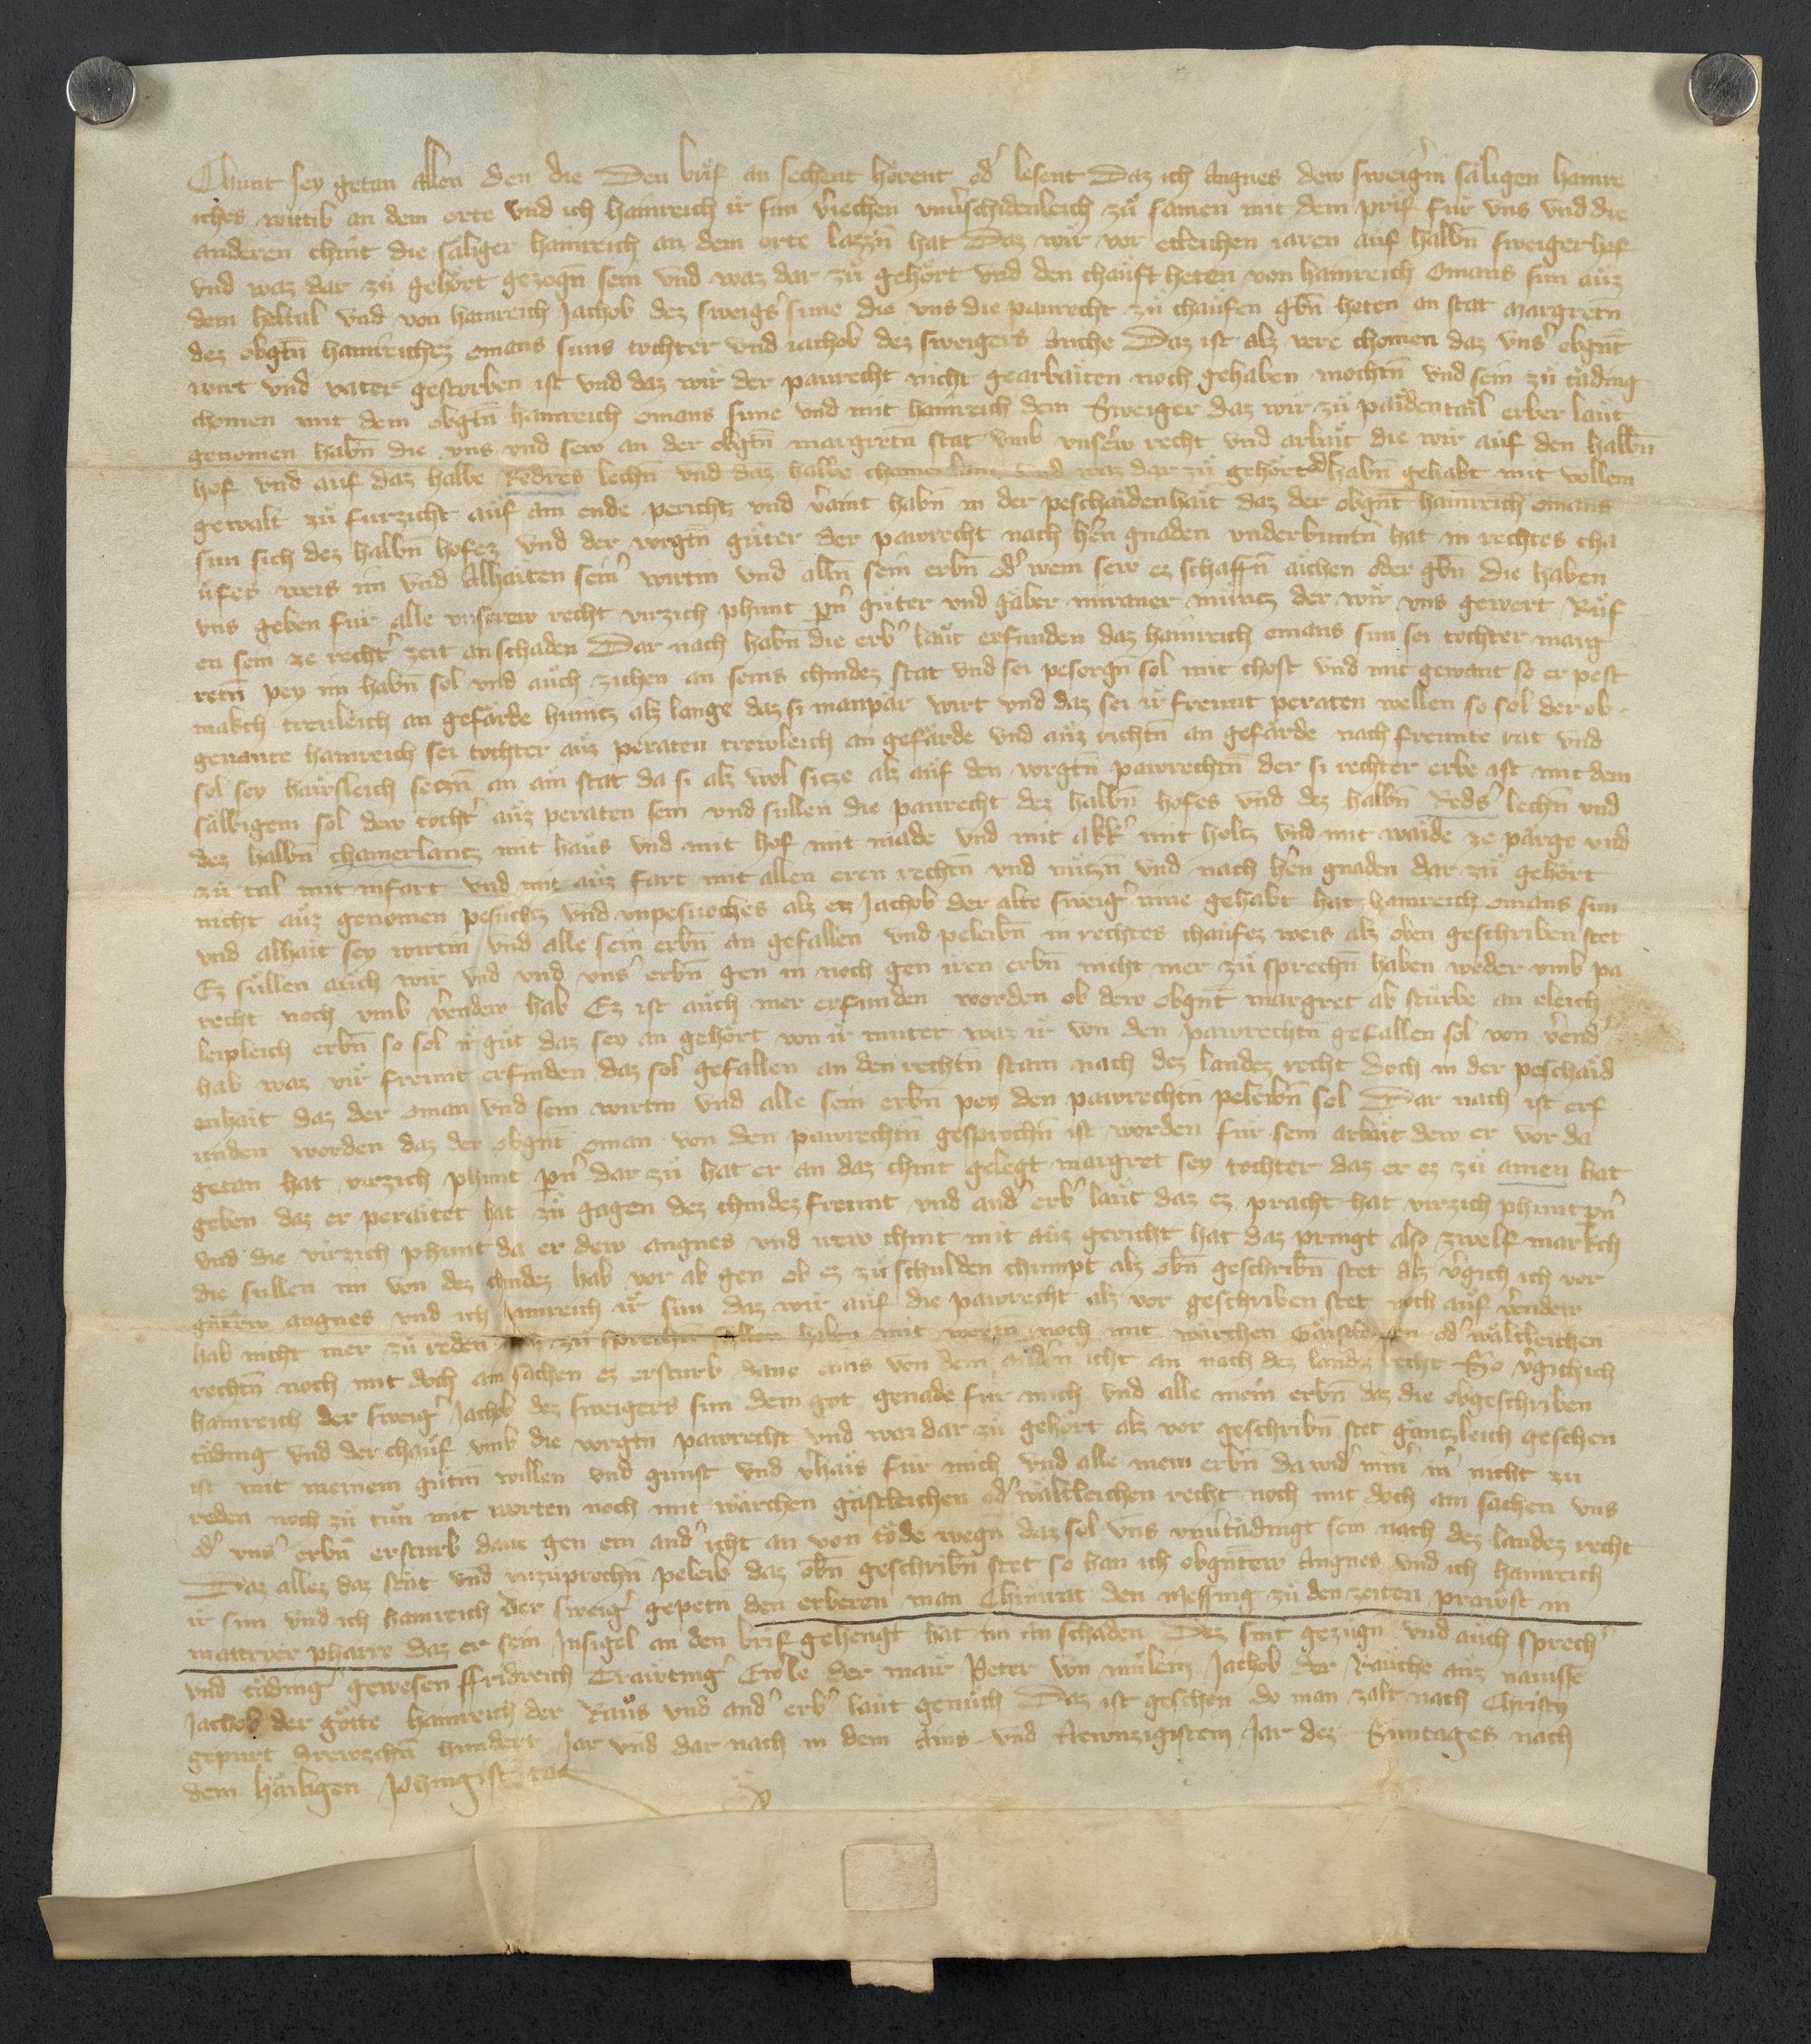 Chunt sey getan allen den die Den brif an sechent hörent od' lesent Daz ich Angnes dew sweig'in säligen hainre
iches witib an dem orte vnd ich hainreich ir sun v'iechen vnu'schidenleich zů samen mit dem prif für vns vnd die
anderen chint die säliger hainreich an dem orte lazzn̄ hat Daz wir vor etleichen iaren auf halbn̄ sweigerhof
vnd waz dar zů gehört gezogn̄ sein vnd waz dar zů gehört vnd den chauft heten von hainreich omans sun auz
dem heltal vnd von hainreich Jachob dez sweig's sune die vns die paurecht zů chaufen gbn̄ heten an stat margretn̄
dez obgtn̄ hainreichez omans suns tochter vnd iachob dez sweigers Daz ist alz verr chomen daz vns' obgn̄t
wirt vnd vater gestorben ist vnd daz wir der paurecht nicht gearbaiten noch gehaben mochtn̄ vnd sein zů täding
chomen mit dem obgtn̄ hainreich omans sune vnd mit hainreich dem Sweiger daz wir zů paidentail erber laut
genomen habn̄ die vns vnd sew an der obgtn̄ margretn̄ stat vmb vnser'w recht vnd arbait die wir auf den halbn̄
hof vnd auf daz halbe Redres lechn̄ vnd daz halbe chamerlant vnd waz dar zů gehört habn̄ gehabt mit vollem
gewalt zů furzicht auf ain ende pericht vnd v'aint habn̄ in der peschaidenhait daz der obgn̄t hainreich omans
sun sich dez halbn̄ hofez vnd der vorgtn̄ güter der pawrecht nach h'en gnaden vnderbuntn̄ hat in rechtes cha
ufes weis im vnd Alhaiten sein' wirtin vnd alln̄ sein erbn̄ od' wem sew ez schaffn̄ oder gbn̄ die haben
vns geben für alle vnserew recht virzich phunt pn̄ güter vnd gäber miraner münitz der wir vns gewert Rüf
en sein ze recht' zeit an schaden Dar nach habn̄ die erb' laut erfunden daz hainreich omans sun sei tochter marg
retn̄ pey im habn̄ sol vnd auch zichen an seins chindez stat vnd sei pesorgn̄ sol mit chost vnd mit gewant so er pest
makch treuleich an gefärde huntz alz lange daz si manpär wirt vnd daz sei ir freunt peraten wellen so sol der ob
genante hainreich sei tochter auz peraten trewleich an gefärde vnd auz richtn̄ an gefärde nach freunte rat vnd
sol sey hausleich setzn̄ an ain stat da si alz wol sitze alz auf den vorgtn̄ pawrechtn̄ der si rechter erbe ist mit dem
sälbigem sol dew tocht' auz peraten sein vnd sullen die paurecht dez halbn̄ hofes vnd dez halbn̄ Reds' lechn̄ vnd
dez halbn̄ chamerlantz mit haus vnd mit hof mit made vnd mit akk' mit holtz vnd mit waide ze parge vnd
zů tal mit infart vnd mit auz fart mit allen eren rechtn̄ vnd nützn̄ vnd nach h'en gnaden dar zů gehört
nicht auz genomen pesüchtz vnd vnpesuoches alz ez Jachob der alte sweig' inne gehabt hat hainreich omans sun
vnd alhait sey wirtin vnd alle sein erbn̄ an gefallen vnd peleibn̄ in rechtes chaufez weis alz oben geschriben stet
Ez sullen auch wir vnd vnd vns' erbn̄ gen in noch gen iren erbn̄ nicht mer zů sprechn̄ haben weder vmb pa
recht noch vmb v'endew hab Ez ist auch mer erfunden worden ob dew obgn̄t margret ab stürbe an eleich
leipleich erbn̄ so sol ir güt daz sey an gehört von ir muter waz ir von den pawrechtn̄ gefallen sol von v'end'
hab waz vir freunt erfinden daz sol gefallen an den rechtn̄ stam nach dez landez recht doch in der peschaid
enhait daz der oman vnd sein wirtin vnd alle sein erbn̄ pey den pawrechtn̄ peleibn̄ sol Dar nach ist erf
unden worden daz der obgn̄t oman von den pawrechtn̄ gesprochn̄ ist worden für sein arbait dew er vor da
getan hat virzich phunt pn̄ dar zů hat er an daz chint gelegt margret sey tochter daz er ez zů amen hat
geben daz er peraitet hat zů gagen dez chindez freunt vnd and' erb' laut daz ez pracht hat virzich phunt pn̄
vnd die virzich phunt da er dew angnes vnd irew chint mit auz gericht hat daz pringt also zwelf markch
die sullen im von dez chindez hab vor ab gen ob ez zů schulden chumpt alz obn̄ geschribn̄ stet Alz v'gich ich vor
gn̄tew angnes vnd ich hainreich ir sun daz wir auf die pawrecht alz vor geschriben stet noch auf v'endew
hab nicht mer zů reden noch zů sprechn̄ sullen haben mit worten noch mit wärchen Gäistleichen od' wältleichen
rechtn̄ noch mit doch ain sachen ez ersturb dane ains von dem and'n icht an nach dez landez recht So v'gich ich
hainreich der sweig' Jachob dez sweigers sun dem got genade für mich vnd alle mein erbn̄ daz die obgeschriben
täding vnd der chauf vmb die vorgtn̄ pawrecht vnd waz dar zů gehört alz vor geschribn̄ stet gäntzleich geschen
ist mit meinem gütm̄ willen vnd gunst vnd v'hais für mich vnd alle mein erbn̄ da wid' nim' m' nicht zu
reden noch zů tůn mit worten noch mit wärchen gäistleichen od' wältleichen recht noch mit doch ain sachen vns
od' vns' erbn̄ ersturb dane gen ein and' icht an von tode wegn̄ daz sol vns vnu'tädingt sein nach dez landez recht
Daz allez daz stät vnd vnzuprochn̄ peleib daz obn̄ geschribn̄ stet so han ich obgn̄tew Angnes vnd ich hainreich
ir sun vnd ich hainreich der sweig' gepetn̄ den erberen man Chünrat den Messing zů den zeiten prawst in
mattreir pharre daz er sein Insigel an den brif gehengt hat im an schaden Dez sint gezügn̄ vnd auch sprech'
vnd täding' gewesen ffridreich Trauting' der mair Peter von mülentz Jachob der Räuche auz nauisse
Jachob der götte hainreich der Raus vnd and' erb' laut genuch Daz ist geschen do man zalt nach Christy
gepurt drewzehn̄ hundert Jar vnd dar nach in dem Ains vnd Newnzigistem Jar dez Suntages nach
dem häiligen phingist tac